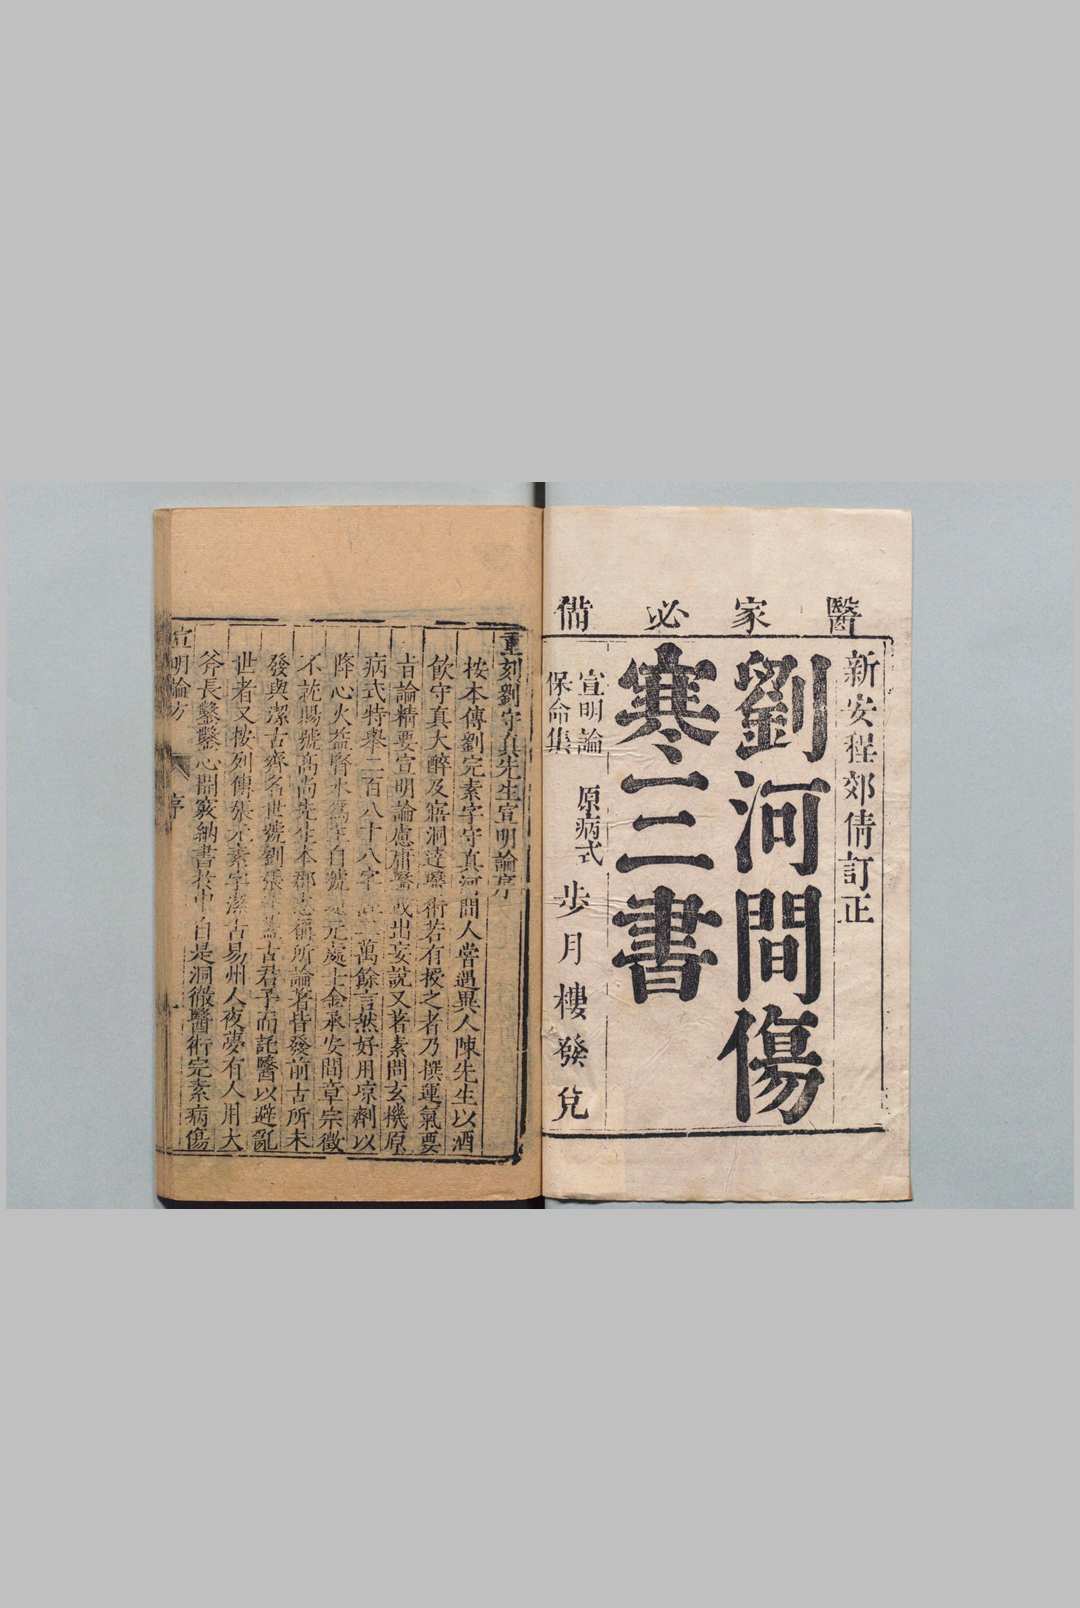 醫家必備
新安程郊倩訂正
劉河間傷
寒三書
宣明論
保命集
原病式
步月樓發兌
重刻劉守真先生宣明論序
按本傳劉完素字守真河間人嘗遇異人陳先生以酒
飲守真大醉及寤洞達醫術若有授之者乃撰運氣要
旨論精要宣明論慮庸醫或出妄說又著素問玄機原
病式特舉二百八十八字 二萬餘言然好用凉劑以
降心火益腎水為主自號 元處士金承安間章宗徵
不就賜號高尚先生本郡 稱所論著皆發前古所未
發與潔古齊名世號劉張 蓋古君子而託醫以避亂
世者又按列傳張元素字潔古易州人夜夢有人用大
斧長鑿鑿心開竅納書於中自是洞徹醫術完素病傷
宣明論方 序 一